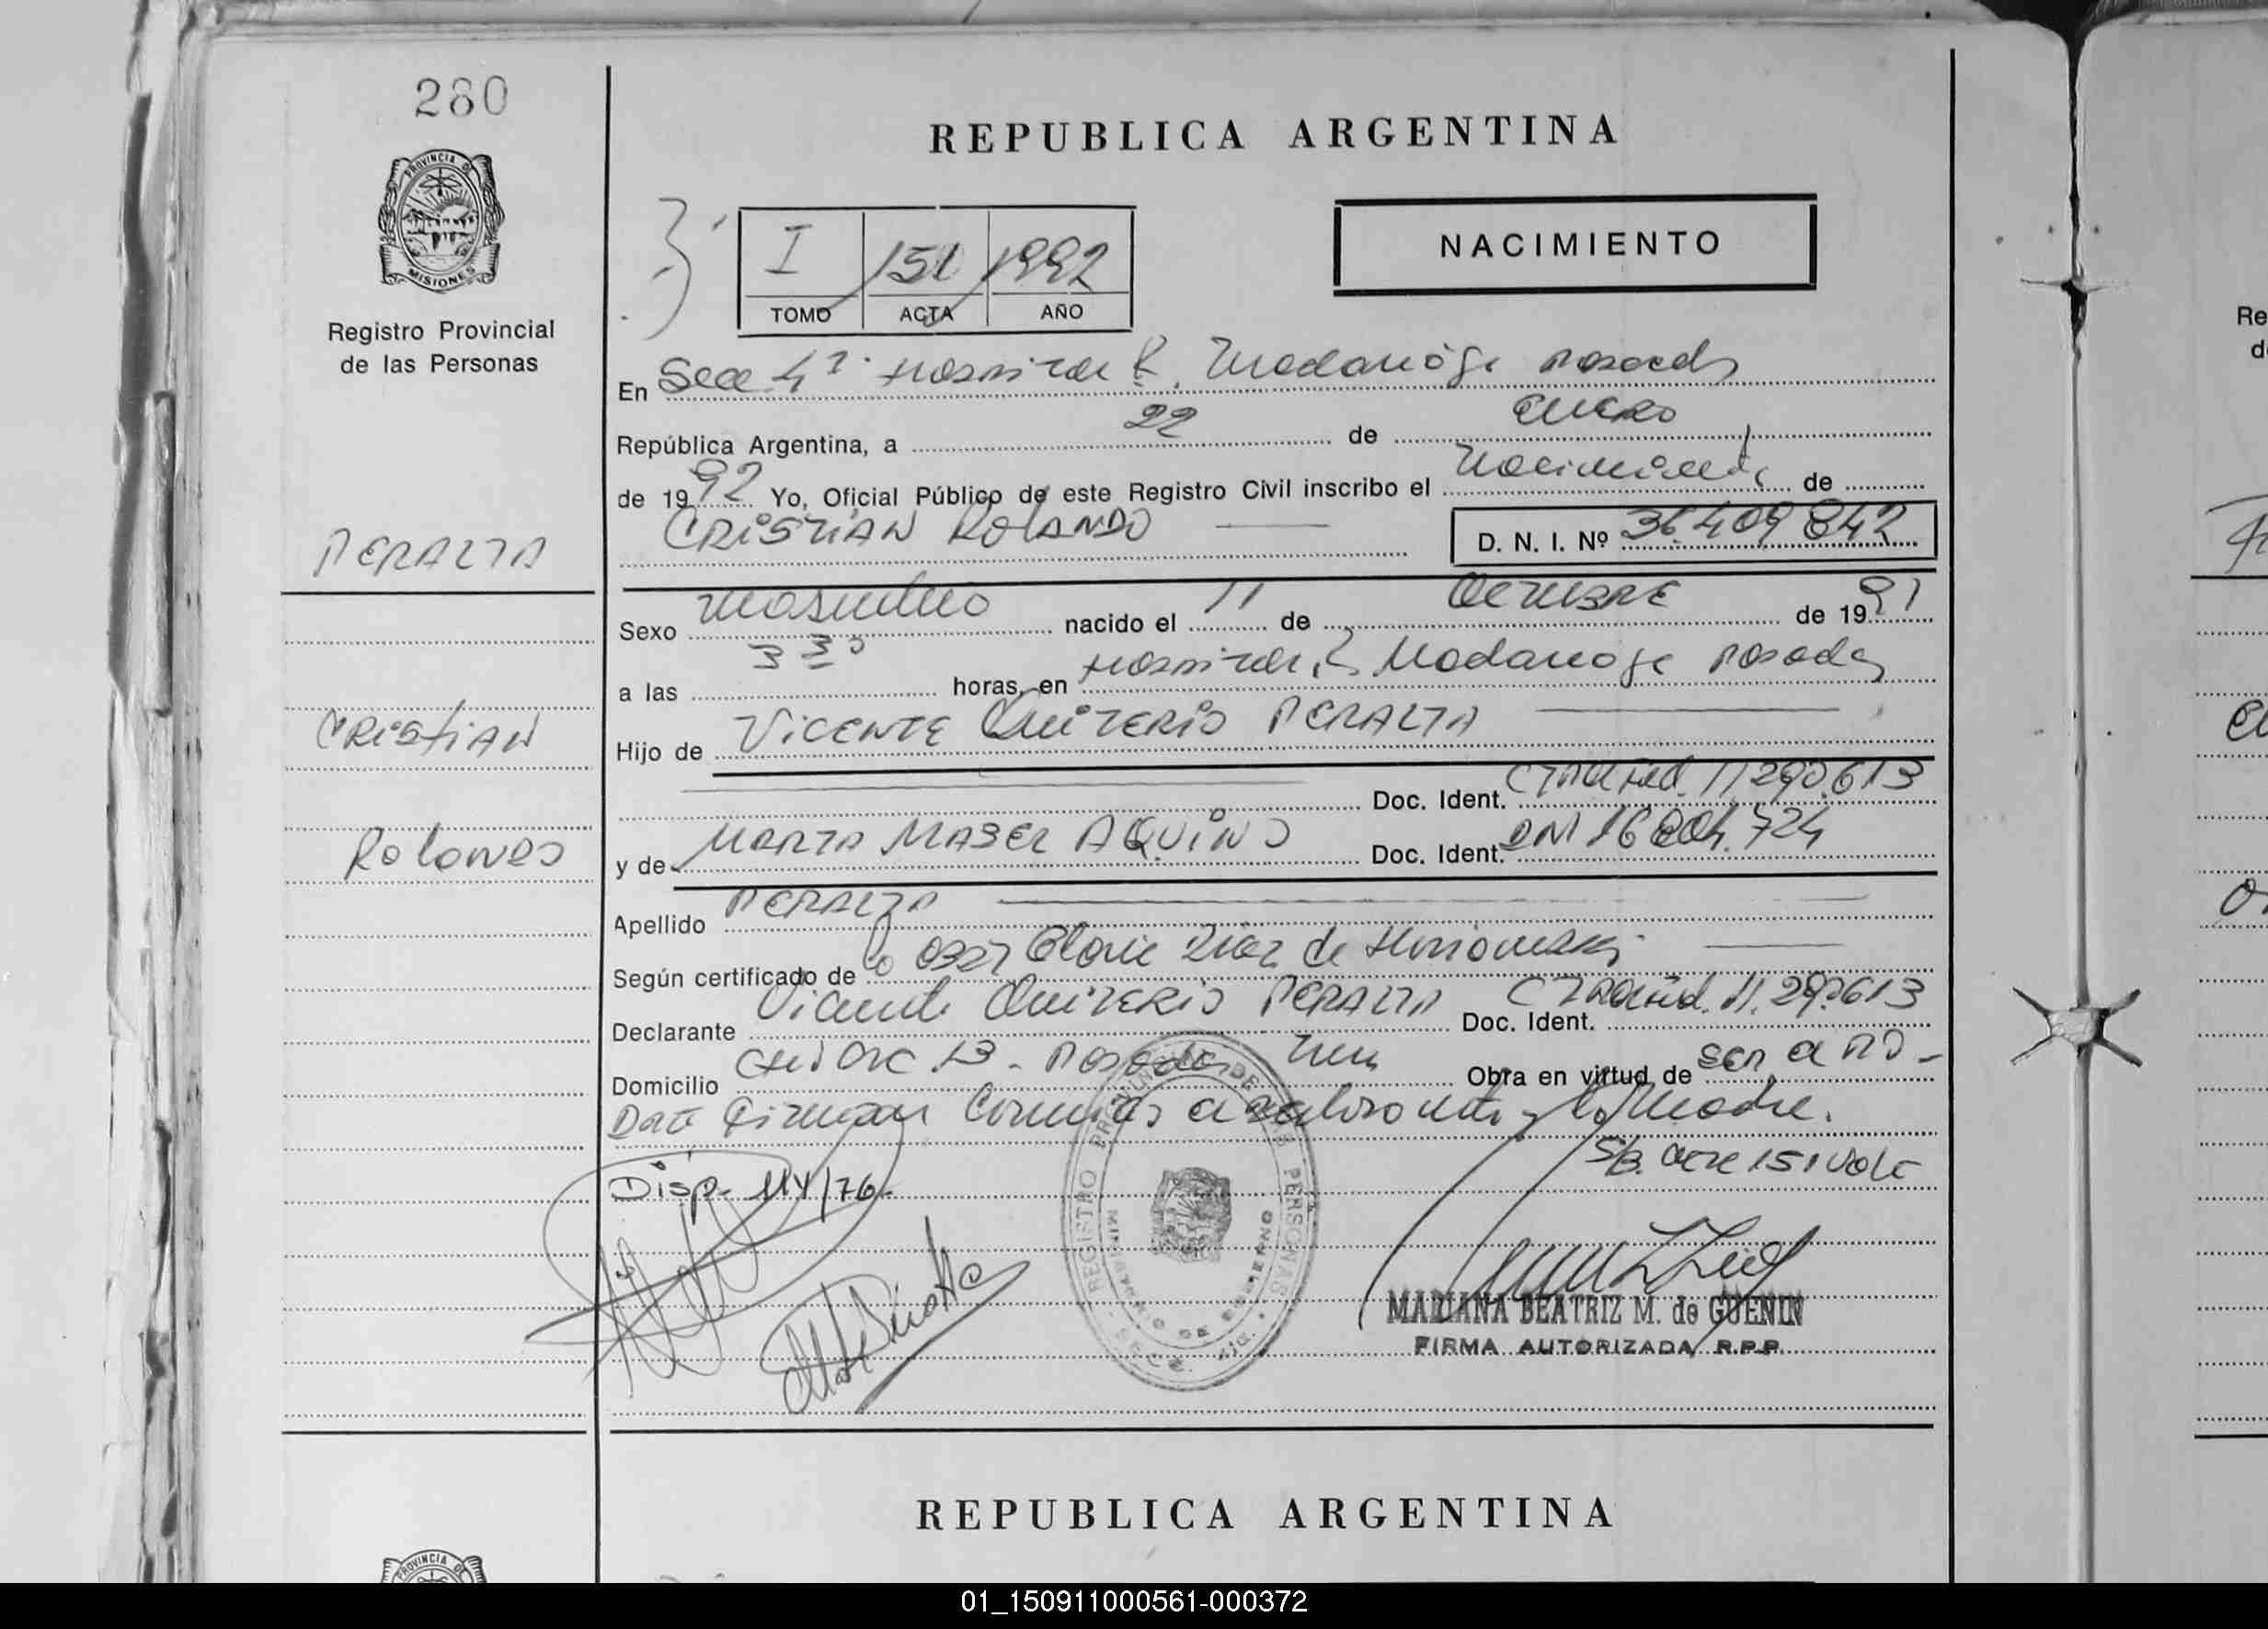 280
PROVINCIA DE
MISIONES
Registro Provincial
de las Personas
PERALTA
CRISTIAN
ROLANDO
REPUBLICA ARGENTINA
I 151 1992
TOMO ACTA AÑO
NACIMIENTO
En Sec 4ª Hospital R. Madariaga Posadas
República Argentina, a 22 de enero
de 1992 Yo, Oficial Público de este Registro Civil inscribo el Nacimiento de
CRISTIAN ROLANDO D. N. I. Nº 36.409.842
Sexo Masculino nacido el 11 de OCTUBRE de 1991
a las 3 30 horas, en Hospital R Madariaga Posadas
Hijo de VICENTE QUITERIO PERALTA
Doc. Ident. 11.290.613
y de MARTA MABEL AQUINO Doc. Ident. DNI 16 804.724
Apellido PERALTA
Según certificado de la Obst Gloria Diaz de
Declarante Vicente QUITERIO PERALTA Doc. Ident. 11.290613
Domicilio 13 - Posadas Mnes Obra en virtud de ser el PA-
DRE Firman y la Madre.
Disp. 114/76. S/B. Acta 151 Vale
REGISTRO PROVINCIAL DE LAS PERSONAS
MINISTERIO DE GOBIERNO
MARIANA BEATRIZ M. de GUENIN
FIRMA AUTORIZADA R.P.P.
REPUBLICA ARGENTINA
PROVINCIA DE
01_150911000561-000372